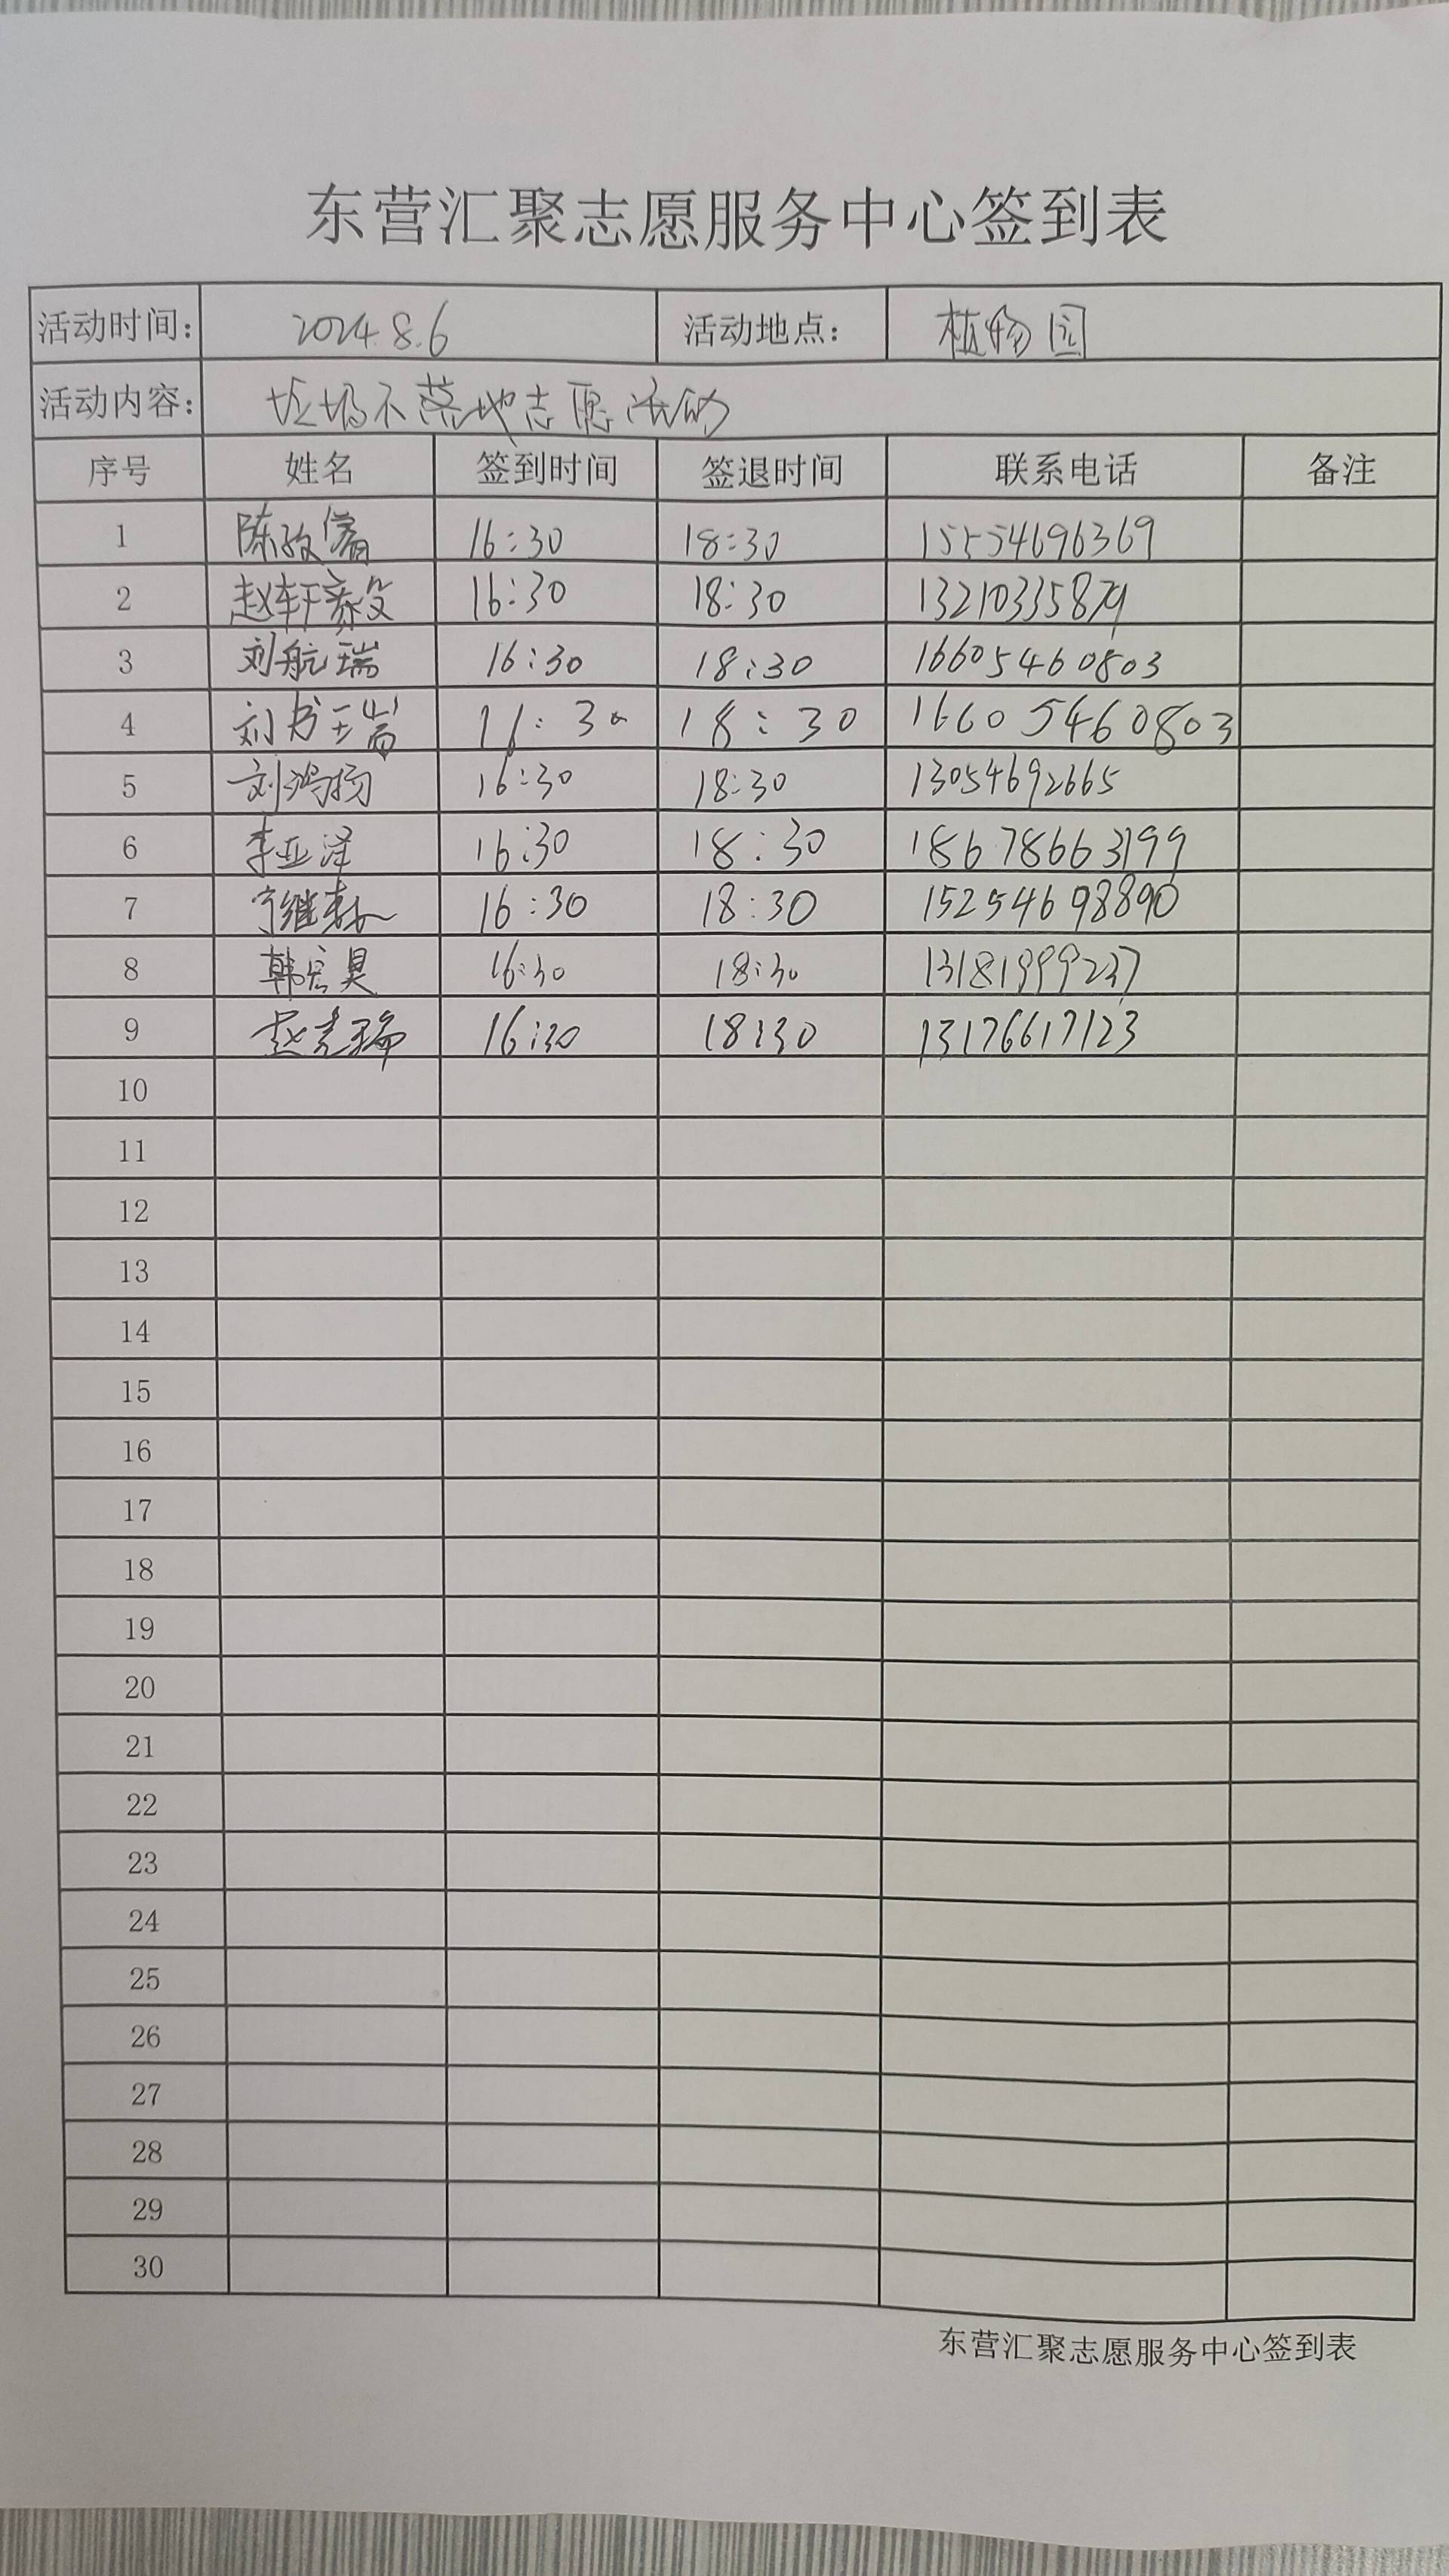 东营汇聚志愿服务中心签到表
活动时间： 2024.8.6 活动地点： 植物园
活动内容： 垃圾不落地志愿活动
序号 姓名 签到时间 签退时间 联系电话 备注
1 陈 16:30 18:30 15554696369
2 赵轩 16:30 18:30 13210335879
3 刘航瑞 16:30 18:30 16605460803
4 刘书瑞 16:30 18:30 16605460803
5 刘鸿扬 16:30 18:30 13054692665
6 李亚泽 16:30 18:30 18678663199
7 宁继 16:30 18:30 15254698890
8 韩宏昊 16:30 18:30 13181999237
9 赵 16:30 18:30 13176617123
10
11
12
13
14
15
16
17
18
19
20
21
22
23
24
25
26
27
28
29
30
东营汇聚志愿服务中心签到表